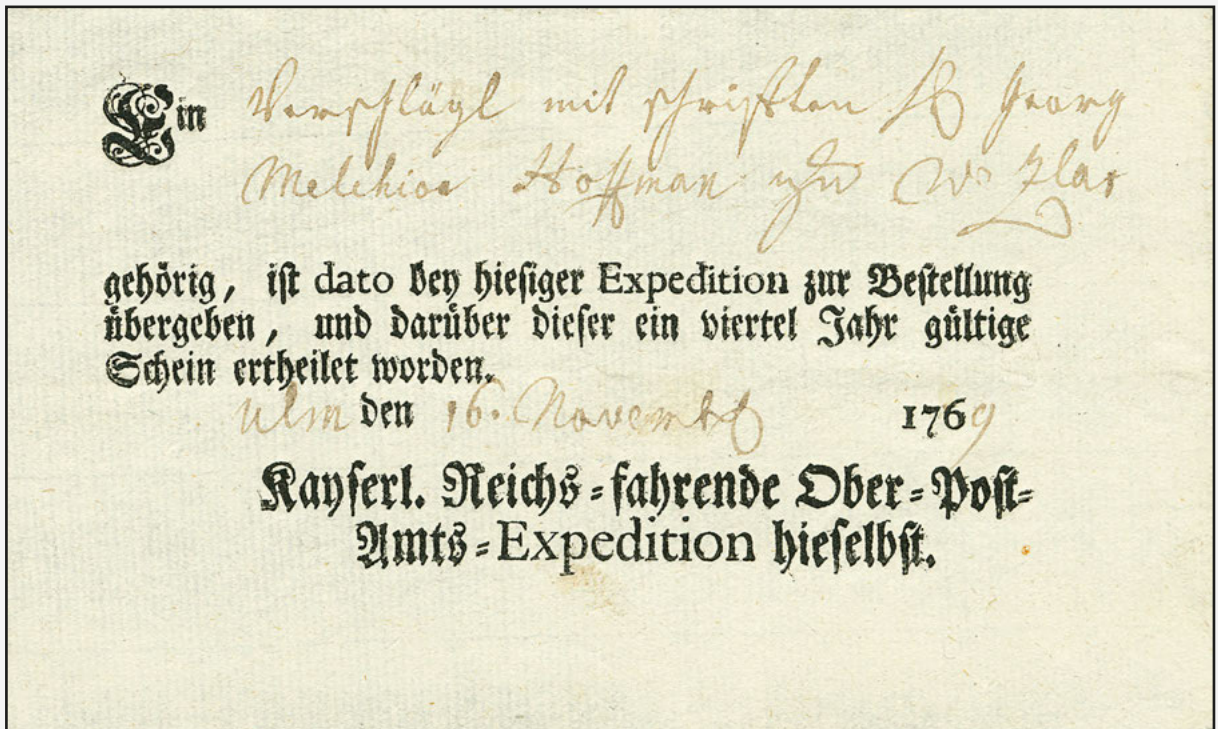 Ein Verschlägl mit schrifften H Georg
Melchior Hoffman zu Wezlar
gehörig, ist dato bey hiesiger Expedition zur Bestellung
übergeben, und darüber dieser ein viertel Jahr gültige
Schein ertheilet worden.
Ulm den 16. Novemb 1769
Kayserl. Reichs-fahrende Ober-Post-
Amts-Expedition hieselbst.